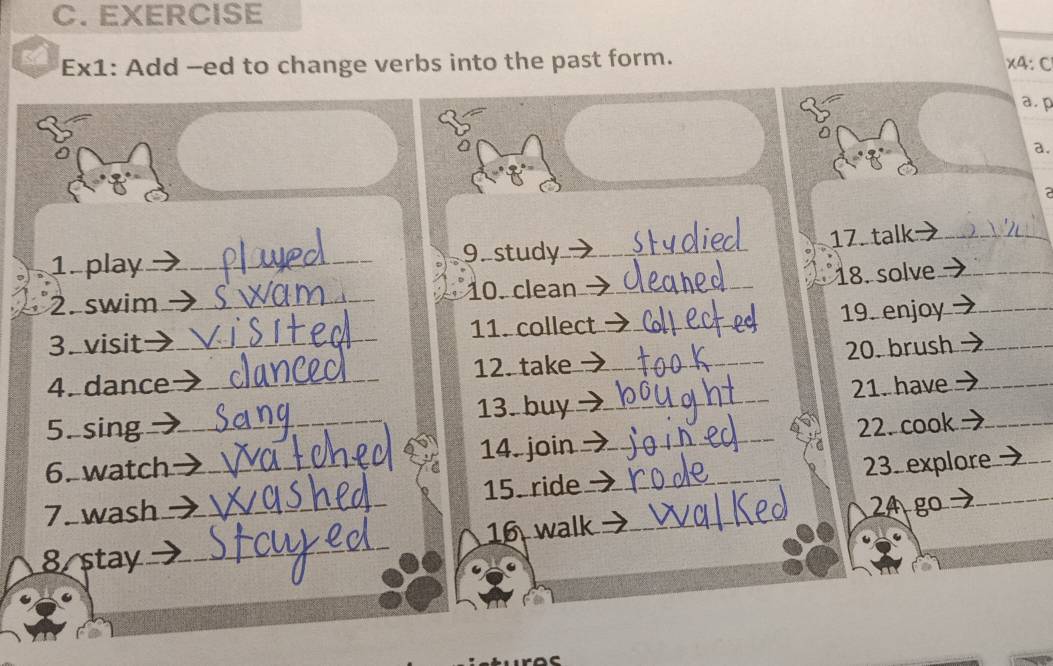 C. EXERCISE
Ex1: Add –ed to change verbs into the past form.
1. play → played
2. swim → swam
3. visit → visited
4. dance → danced
5. sing → sang
6. watch → watched
7. wash → washed
8. stay → stayed
9. study → studied
10. clean → cleaned
11. collect → collected
12. take → took
13. buy → bought
14. join → joined
15. ride → rode
16. walk → walked
17. talk →
18. solve →
19. enjoy →
20. brush →
21. have →
22. cook →
23. explore →
24. go →
x4: C
a. p
a.